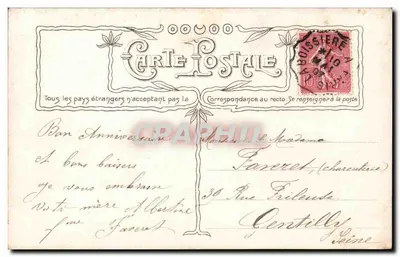 CARTE POSTALE
Tous les pays étrangers n'acceptent pas la Correspondance au recto. Se renseigner à la poste
LA BOISSIERE
Bon Anniversaire
et bons baisers
je vous embrasse
Albertine
Faveret
Madame
Faveret
39 Rue
Gentilly
Seine
CPAPHIL